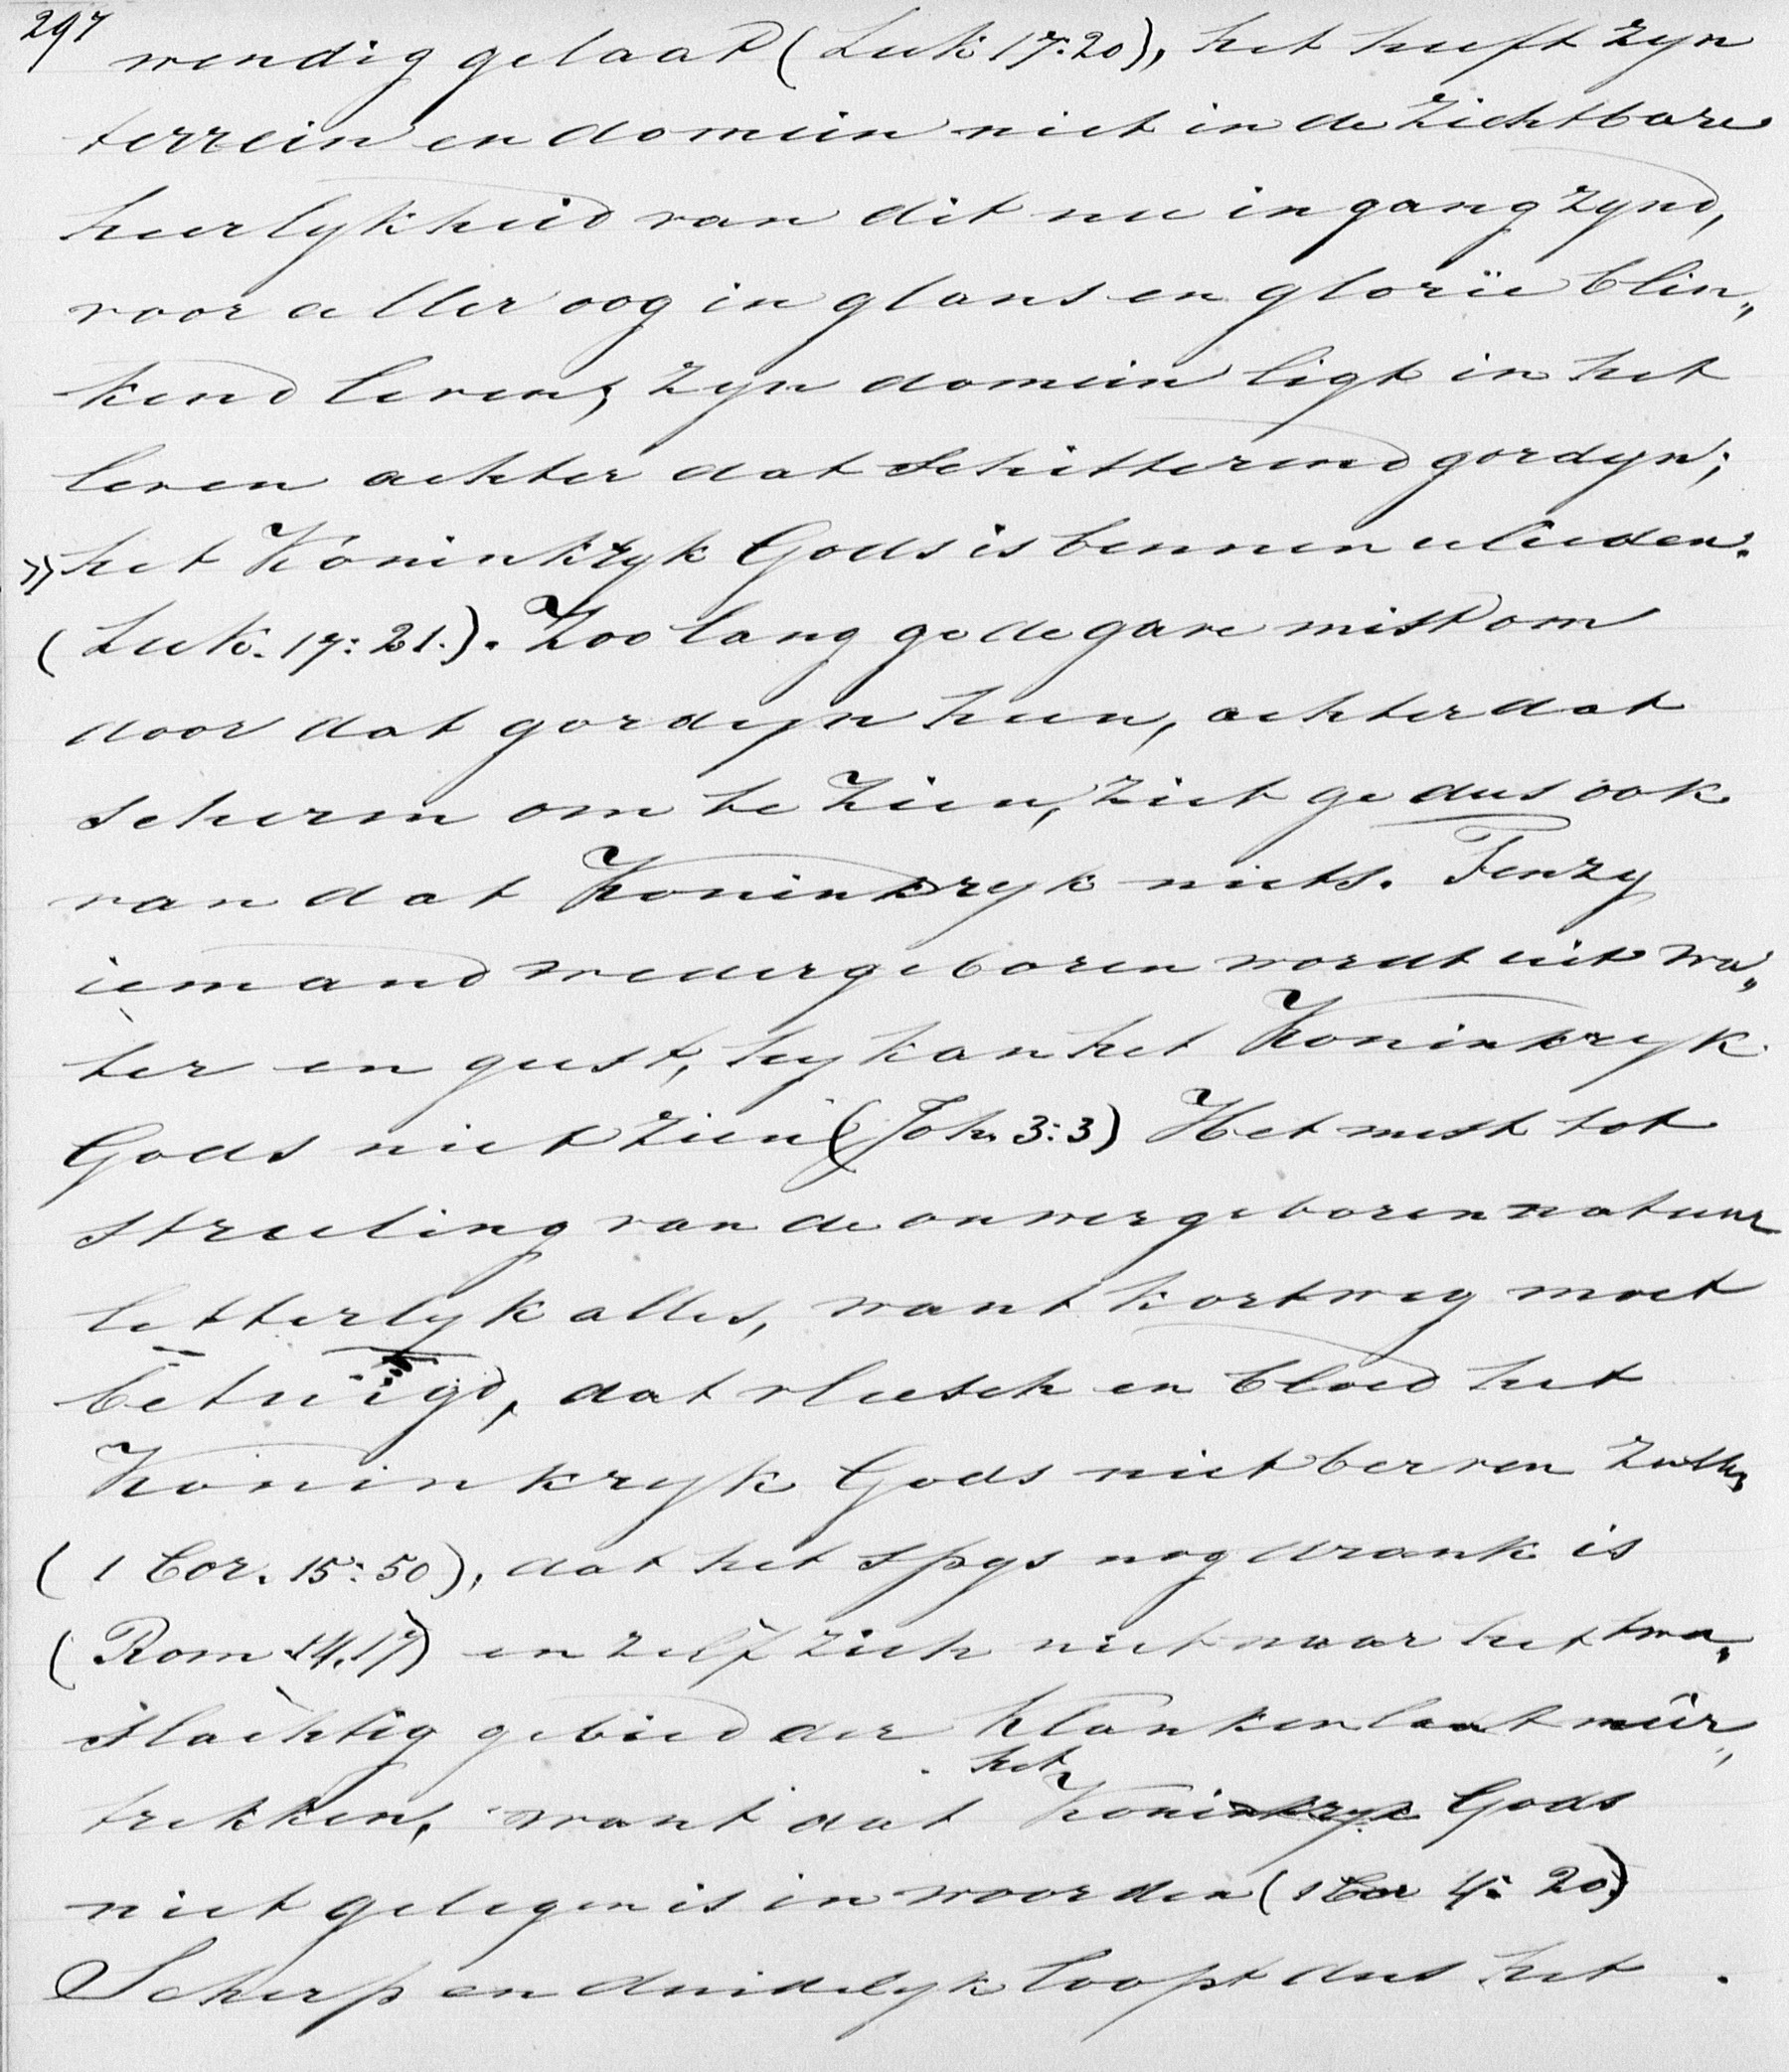 297 wendig gelaat (Luk 17:20), het heeft zyn
terrein en domein niet in de zichtbare
heerlykheid van dit nu in gang zynd,
voor aller oog in glans en glorie blin„
kend leven, zyn domein ligt in het
leven achter dat schitterend gordyn;
» het Koninkryk Gods is binnen ulieden.
(Luk. 17:21.). Zoolang ge de gave mist om
door dat gordyn heen, achter dat
scherm om te zien, ziet ge dus ook
van dat Koninkryk niets. Tenzy
iemand wedergeboren wordt uit wa„
ter en geest, hy kan het Koninkryk
Gods niet zien (Joh. 3:3) Het mist tot
streeling van de onwergeboren natuur
letterlyk alles, want kortweg moet
betuigd, dat vleesch en bloed het
Koninkryk Gods niet berven zullen
(1 Cor. 15:50), dat het spys nog drank is
(Rom 14,17) en zelf zich niet naar het twa„
slachtig gebied der klanken laat neêr„
trekken, want dat het Koninkryk Gods
niet gelegen is in woorden (1 Cor 4:20)
Scherp en duidelyk loopt dus het